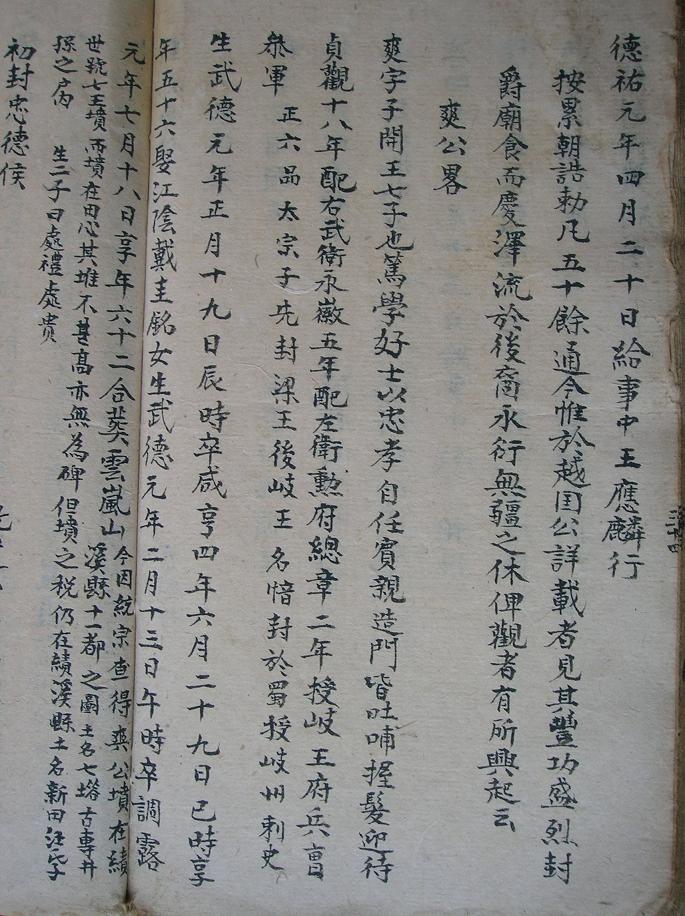 德祐元年四月二十日給事中王應麟行
按累朝誥勅凡五十餘通今惟於越国公詳載者見其豐功盛烈封
爵廟食而慶澤流於後裔永衍無疆之休俾觀者有所興起云
爽公畧
爽字子開王七子也篤學好士以忠孝自任賓親造門皆吐哺握髮迎待
貞觀十八年配右武衛永徽五年配左衛勲府總章二年授岐王府兵曹
叅軍 正六品太宗子先封梁王後岐王名愔封於蜀授岐州刺史
生武德元年正月十九日辰時卒咸亨四年六月二十九日巳時享
年五十六娶江陰戴圭銘女生武德元年二月十三日午時卒調露
元年七月十八日享年六十二合葬雲嵐山 今因統宗查得爽公墳在績
溪縣十一都之圖土名七塔古專井
世號七王墳两墳在田心其堆不甚高亦無為碑但墳之税仍在績溪縣土名新田汪
孫之户内 生二子曰處禮處貴
初封忠德侯
三十四